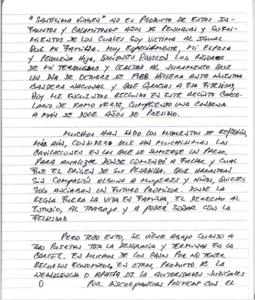 "SANTÍSIMA VIRGEN" NO ES PRODUCTO DE ESTOS IN-
Y AÑOS DE PENURIAS Y SUFRI-
MIENTOS DE LOS CUALES SOY VÍCTIMA AL IGUAL
QUE MI FAMILIA. MUY ESPECIALMENTE, MI ESPOSA
Y PEQUEÑA HIJA, QUIENES PUEBLEN LOS
DE MI Y LEALTAD AL JURAMENTO QUE
UN DÍA DE OCTUBRE DE 1988 HICIERA ANTE NUESTRA
BANDERA NACIONAL Y QUE GRACIAS A ESA
HOY ME ENCUENTRO RECLUIDO EN ESTE CENTRO
LARIO DE RAMO VERDE, CUMPLIENDO UNA CONDENA
A MÁS DE DOCE AÑOS DE PRESIDIO.
MUCHOS HAN SIDO LOS MOMENTOS DE REFLEXIÓN,
MÁS AÚN, CONSIDERO QUE HAN MUCHÍSIMAS LAS
EN LAS QUE SE SUMERGE UN PRESO.
PARA ANALIZAR DONDE COMENZÓ A FALLAR Y CUAL
FUE EL ORIGEN DE SU PESADILLA. QUE
SIN COMPASIÓN ALGUNA A MUJERES Y NIÑOS, QUIENES
SOLO UN FUTURO PROMISOR. DONDE LA
REGLA FUERA LA VIDA EN FAMILIA, EL DERECHO AL
ESTUDIO, AL TRABAJO Y A PODER SOÑAR CON LA
FELICIDAD.
PERO TODO ESTO, SE VIENE ABAJO CUANDO A
TUS PUERTAS TOCA LA DESGRACIA Y TERMINAS EN LA
CÁRCEL. EN MUCHOS DE LOS CASOS POR NO TENER
RECURSOS ECONÓMICOS, EN OTROS PRODUCTO DE LA
NEGLIGENCIA O APATÍA DE LA AUTORIDADES JUDICIALES
O POR DISCREPANCIAS POLÍTICAS CON EL